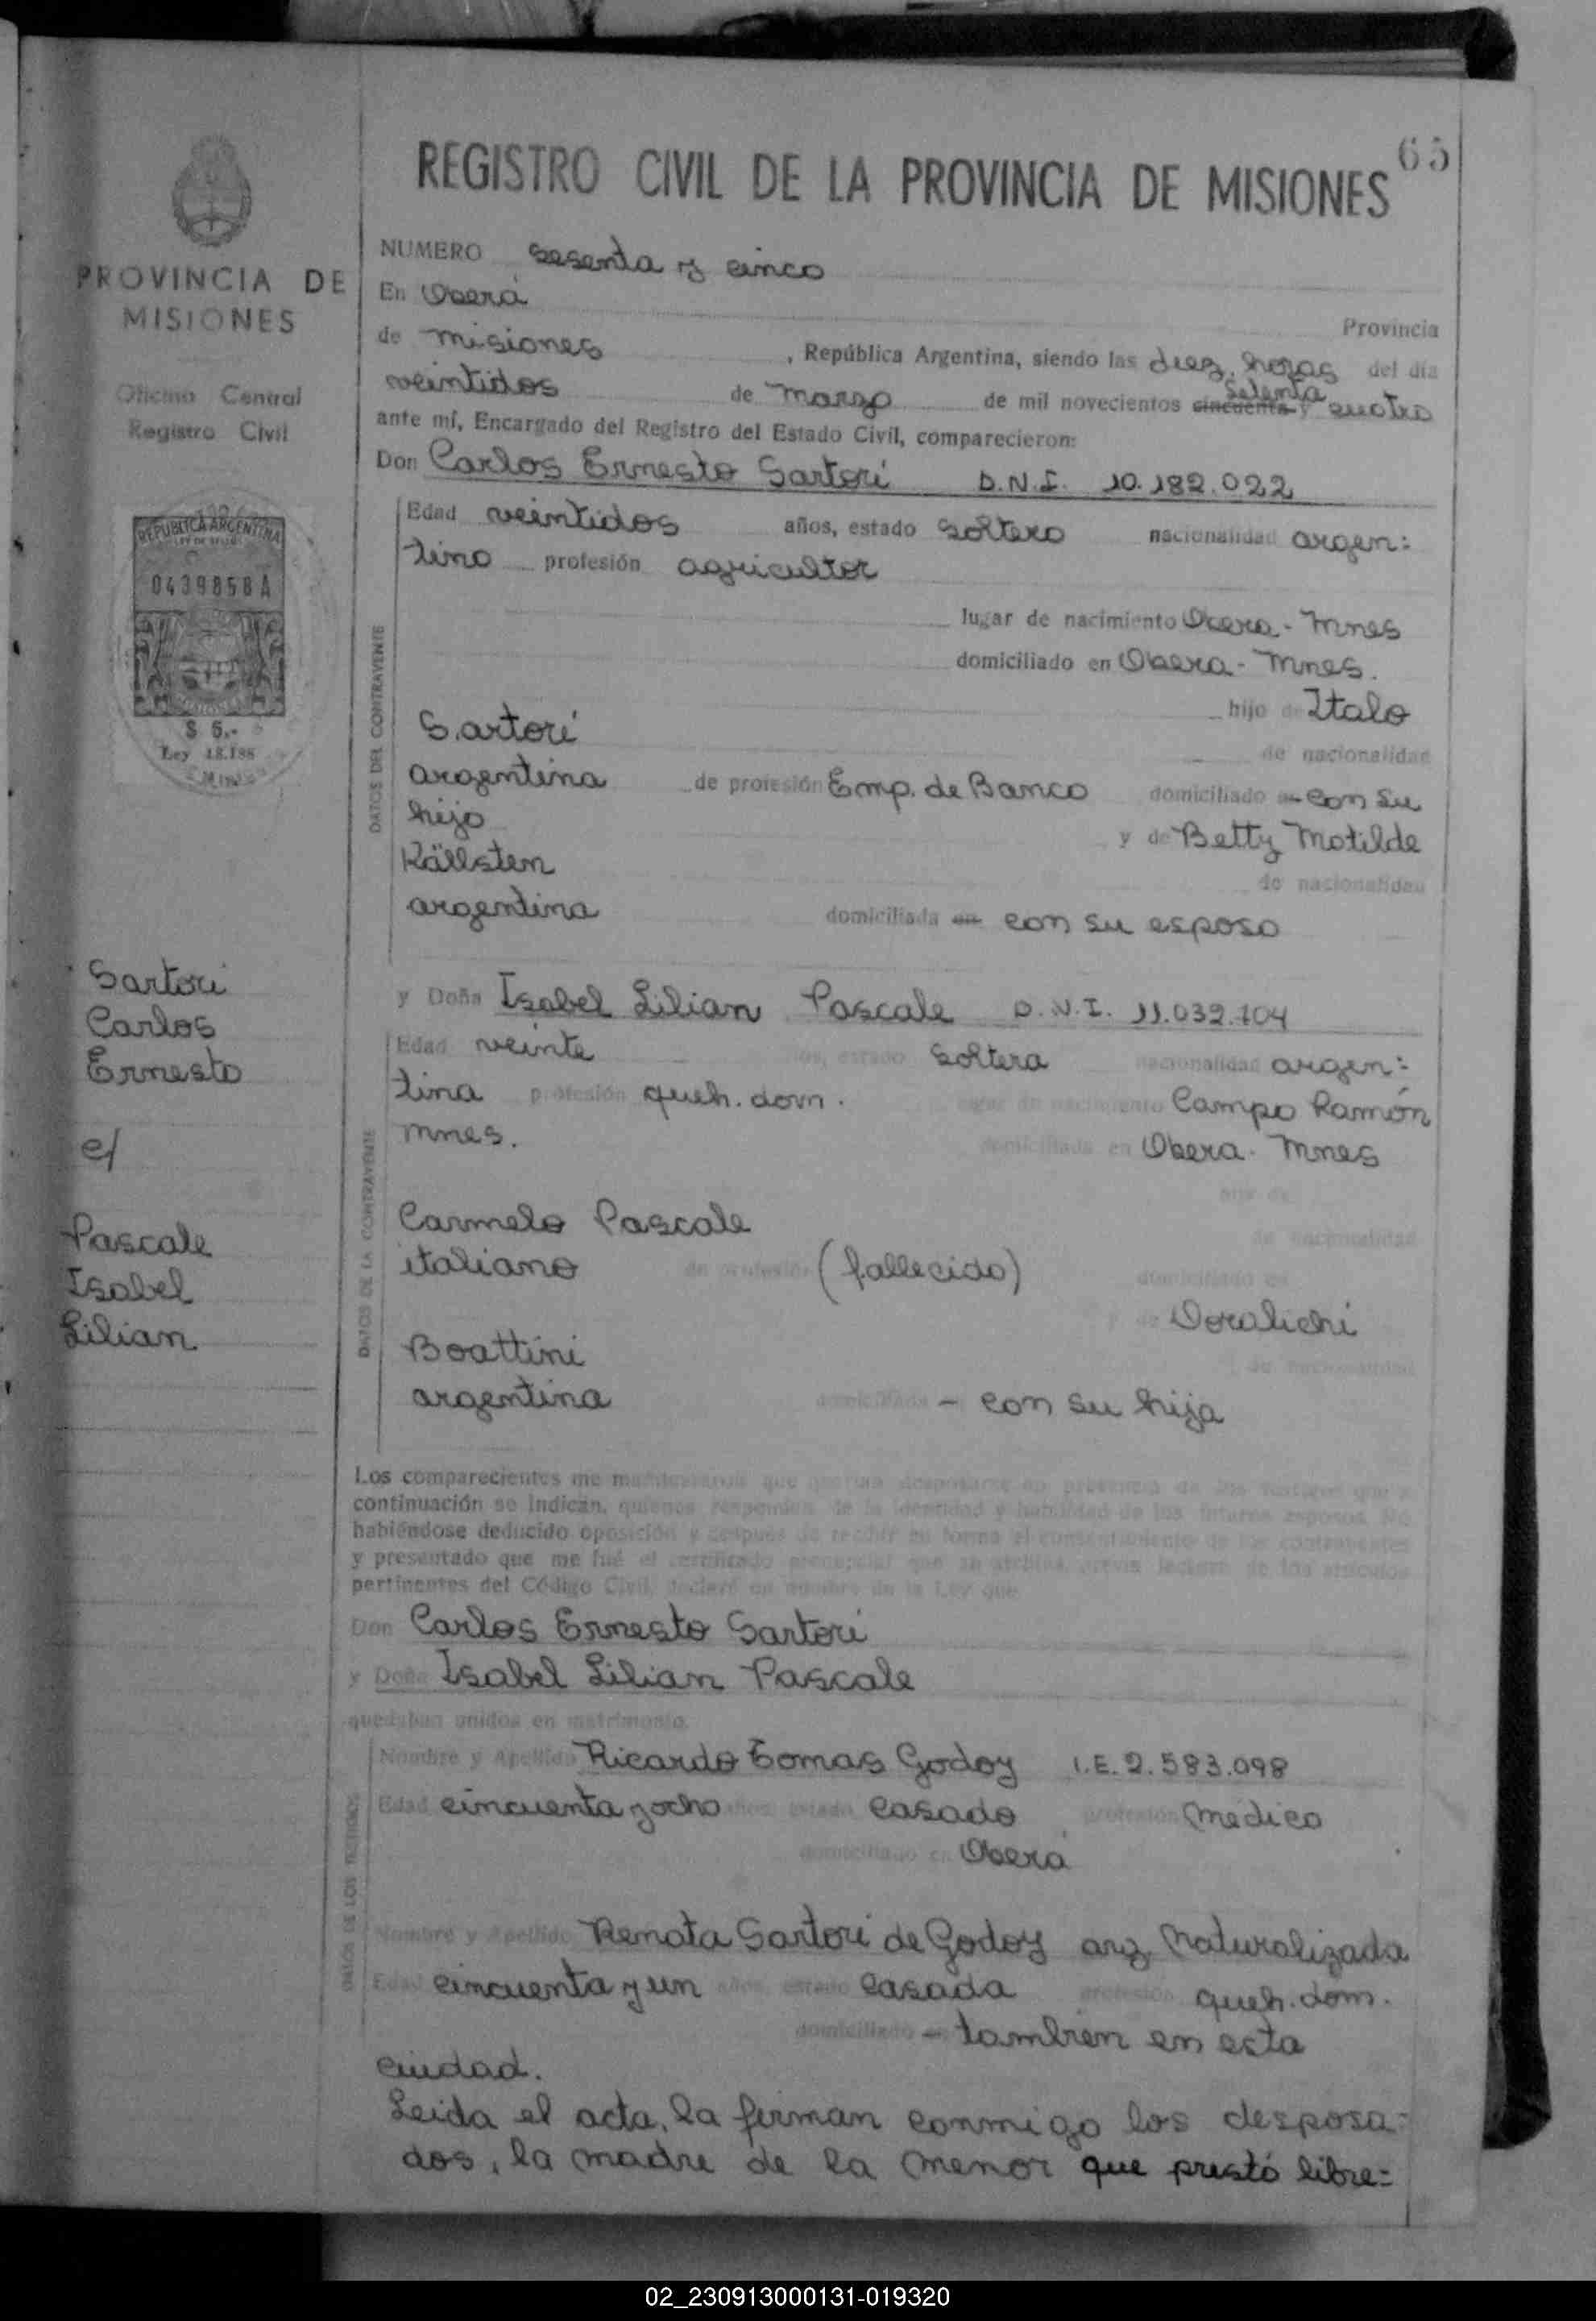 65
REGISTRO CIVIL DE LA PROVINCIA DE MISIONES
PROVINCIA DE
MISIONES
Oficina Central
Registro Civil
REPUBLICA ARGENTINA
LEY DE SELLOS
0439858 A
$ 5.-
Ley 18.188
Sartori
Carlos
Ernesto
c/
Pascale
Isabel
Lilian
NUMERO sesenta y cinco
En Oberá Provincia
de misiones, República Argentina, siendo las diez horas del día
veintidos de marzo de mil novecientos cincuenta setenta y cuatro
ante mí, Encargado del Registro del Estado Civil, comparecieron:
Don Carlos Ernesto Sartori D.N.I. 10.182.022
DATOS DEL CONTRAYENTE
Edad veintidos años, estado soltero nacionalidad argen:
tino profesión agricultor
lugar de nacimiento Obera - Mnes
domiciliado en Obera - Mnes.
hijo de Italo
Sartori
de nacionalidad
argentina de profesión Emp. de Banco domiciliado - con su
hijo y de Betty Matilde
Källsten
de nacionalidad
argentina domiciliada en con su esposo
y Doña Isabel Lilian Pascale D.N.I. 11.032.104
DATOS DE LA CONTRAYENTE
Edad veinte años, estado soltera nacionalidad argen:
tina profesión queh. dom. lugar de nacimiento Campo Ramón
mnes. domiciliada en Obera - Mnes
hija de
Carmelo Pascale
de nacionalidad
italiano de profesión (fallecido) domiciliado en
y de Doralichi
Boattini
de nacionalidad
argentina domiciliada - con su hija
Los comparecientes me manifestaron que querían desposarse en presencia de los testigos que a
continuación se indican, quienes responden de la identidad y habilidad de los futuros esposos. No
habiéndose deducido oposición y después de recibir en forma el consentimiento de los contrayentes
y presentado que me fué el certificado prenupcial que se archiva, previa lectura de los artículos
pertinentes del Código Civil, declaré en nombre de la Ley que
Don Carlos Ernesto Sartori
y Doña Isabel Lilian Pascale
quedaban unidos en matrimonio.
DATOS DE LOS TESTIGOS
Nombre y Apellido Ricardo Tomas Godoy I.E. 2.583.098
Edad cincuenta y ocho años, estado casado profesión médico
domiciliado en Oberá
Nombre y Apellido Renata Sartori de Godoy arg. naturalizada
Edad cincuenta y un años, estado casada profesión queh. dom.
domiciliado - tambien en esta
ciudad.
Leida el acta, la firman conmigo los desposa-
dos, la madre de la menor que prestó libre=
02_230913000131-019320